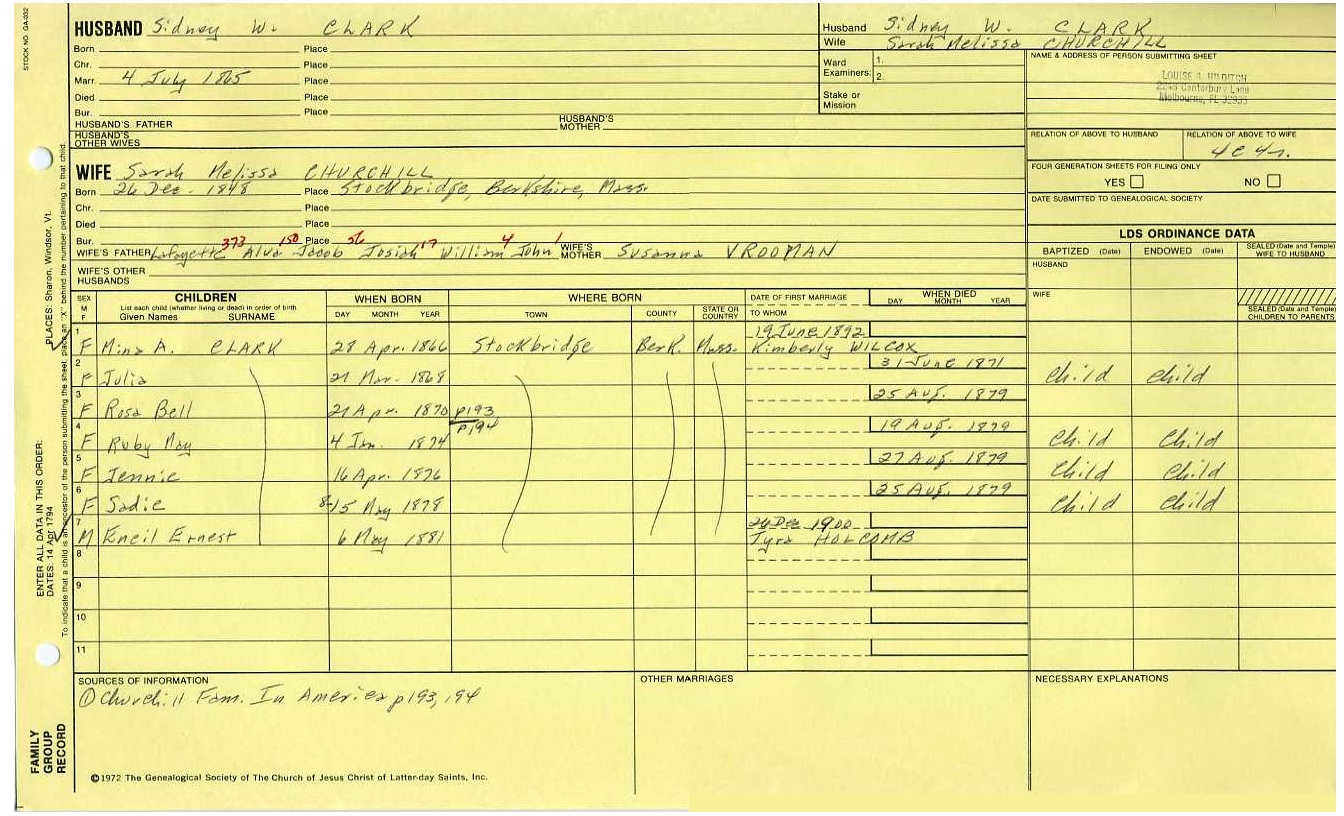 STOCK NO. GA-032
HUSBAND Sidney W. CLARK
Born Place
Chr. Place
Marr. 4 July 1865 Place
Died Place
Bur. Place
HUSBAND'S FATHER HUSBAND'S MOTHER
HUSBAND'S OTHER WIVES
Husband Sidney W. CLARK
Wife Sarah Melissa CHURCHILL
Ward Examiners: 1.
2.
Stake or Mission
NAME & ADDRESS OF PERSON SUBMITTING SHEET
LOUISE A. HILDITCH
2248 Canterbury Lane
Melbourne, FL 32935
RELATION OF ABOVE TO HUSBAND RELATION OF ABOVE TO WIFE
4c4r.
FOUR GENERATION SHEETS FOR FILING ONLY
YES NO
DATE SUBMITTED TO GENEALOGICAL SOCIETY
WIFE Sarah Melissa CHURCHILL
Born 26 Dec. 1848 Place Stockbridge, Berkshire, Mass.
Chr. Place
Died Place
Bur. Place
373 150 56 17 4 1
WIFE'S FATHER Lafayette Alva Jacob Josiah William John WIFE'S MOTHER Susanna VROOMAN
WIFE'S OTHER HUSBANDS
LDS ORDINANCE DATA
BAPTIZED (Date) ENDOWED (Date) SEALED (Date and Temple) WIFE TO HUSBAND
HUSBAND
WIFE
SEALED (Date and Temple) CHILDREN TO PARENTS
SEX M F CHILDREN WHEN BORN WHERE BORN DATE OF FIRST MARRIAGE WHEN DIED
List each child (whether living or dead) in order of birth
Given Names SURNAME DAY MONTH YEAR TOWN COUNTY STATE OR COUNTRY TO WHOM DAY MONTH YEAR
1 19 June 1892
F Mina A. CLARK 28 Apr. 1866 Stockbridge Berk. Mass. Kimberly WILCOX
2 31 June 1871
F Julia 21 Mar. 1868 Child Child
3 25 Aug. 1879
F Rosa Bell 21 Apr. 1870 p193
4 p194 19 Aug. 1879
F Ruby May 4 Jan. 1874 Child Child
5 27 Aug. 1879
F Jennie 16 Apr. 1876 Child Child
6 25 Aug. 1879
F Sadie 8-15 May 1878 Child Child
7 26 Dec 1900
M Kneil Ernest 6 May 1881 Tyra HOLCOMB
8
9
10
11
SOURCES OF INFORMATION
① Churchill Fam. In America p193, 194
OTHER MARRIAGES
NECESSARY EXPLANATIONS
©1972 The Genealogical Society of The Church of Jesus Christ of Latter-day Saints, Inc.
FAMILY GROUP RECORD
ENTER ALL DATA IN THIS ORDER:
DATES: 14 Apr 1794
PLACES: Sharon, Windsor, Vt.
To indicate that a child is an ancestor of the person submitting the sheet, place an "X" behind the number pertaining to that child.